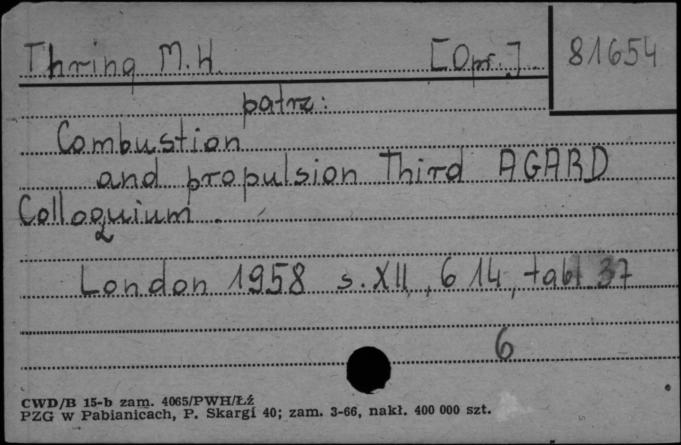 Thring M.H. [Opr.]. 81654
patrz:
Combustion
and propulsion Third AGARD
Colloquium.
London 1958 s. XII, 614, tabl. 37
6
CWD/B 15-b zam. 4065/PWH/Łź
PZG w Pabianicach, P. Skargi 40; zam. 3-66, nakł. 400 000 szt.